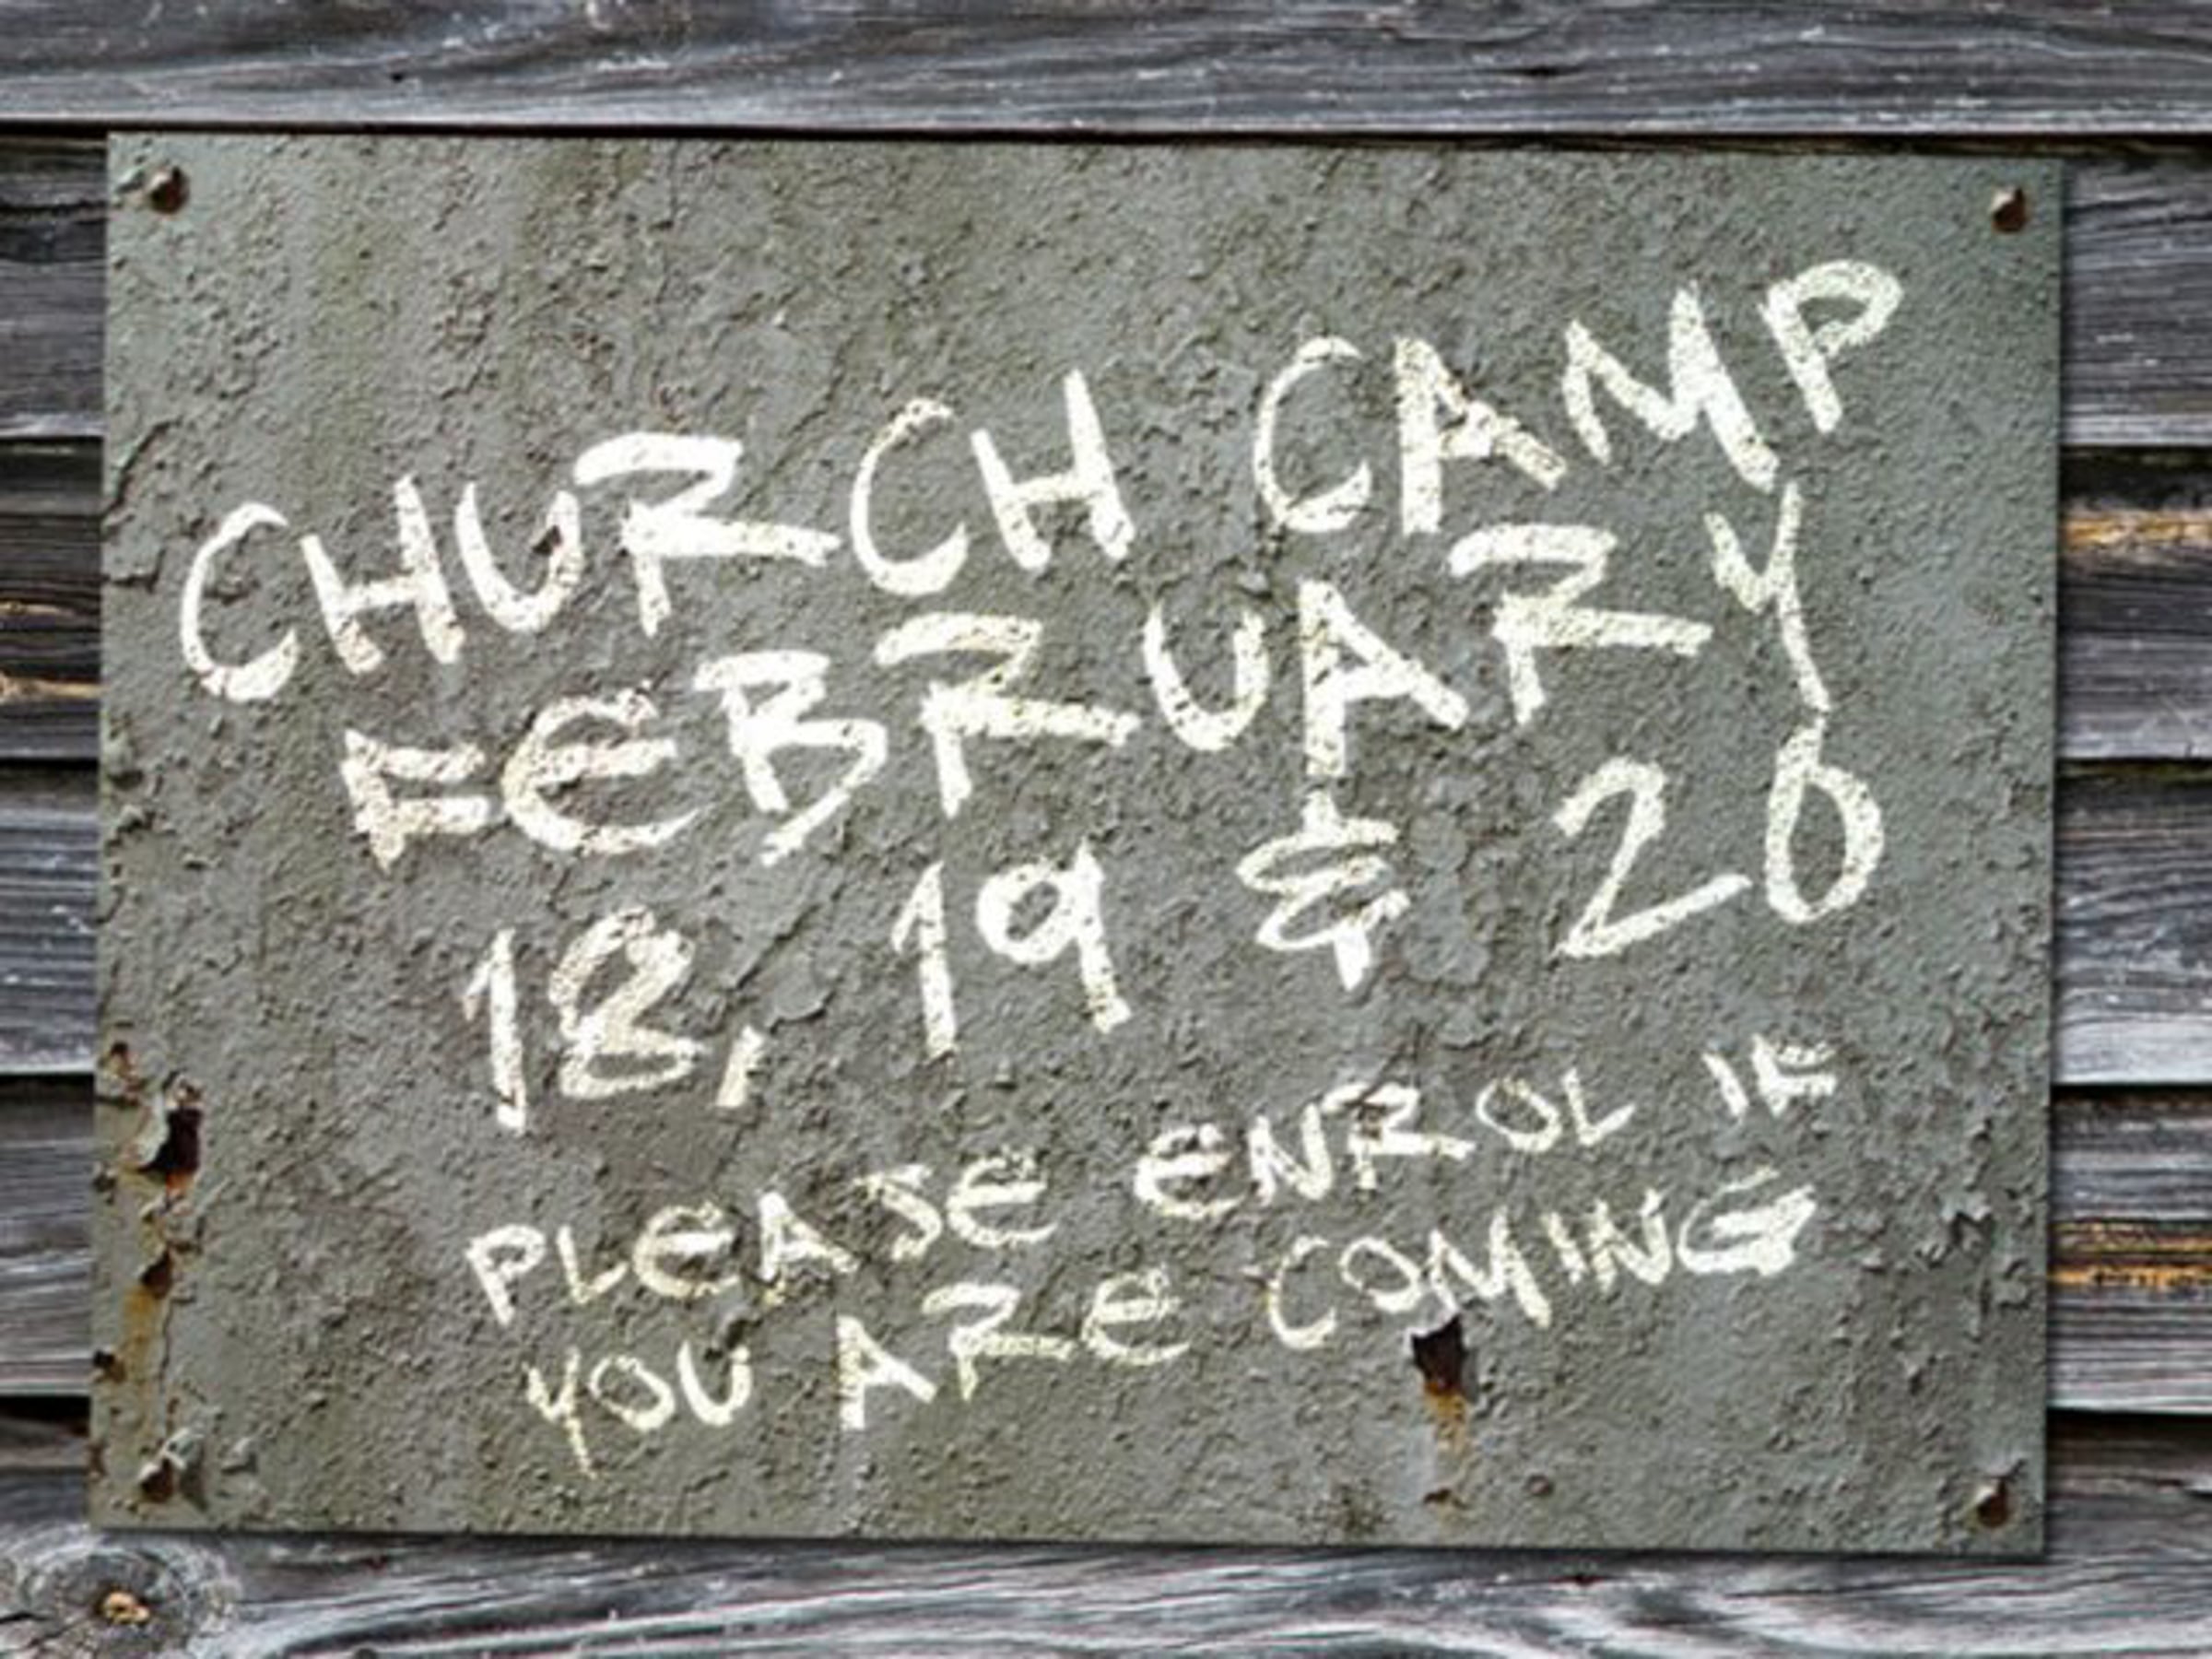 CHURCH CAMP
FEBRUARY
18, 19 & 20
PLEASE ENROL IF
YOU ARE COMING